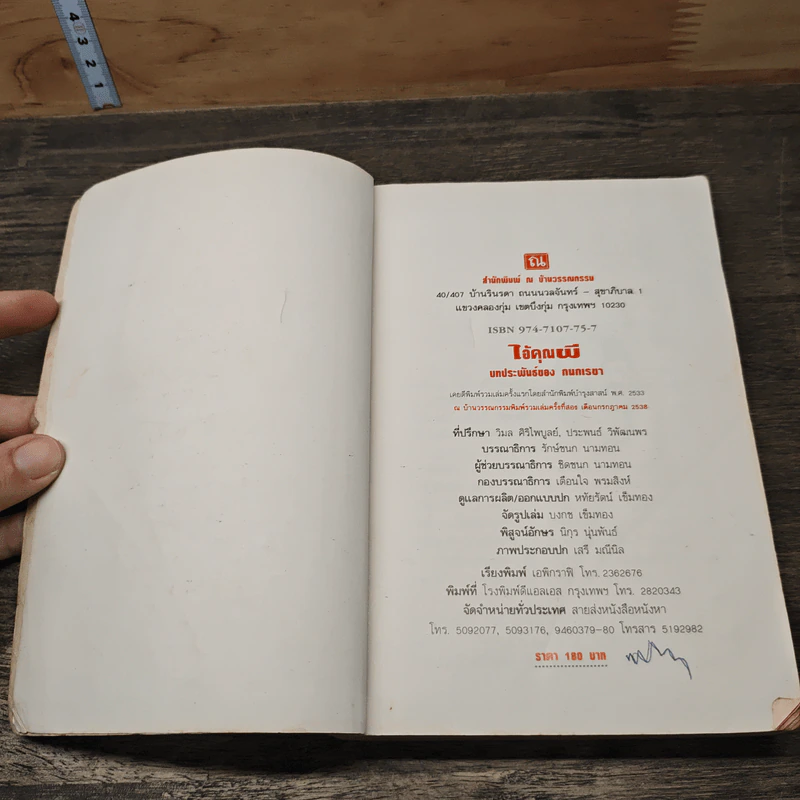 4
3
2
1
ณ
สำนักพิมพ์ ณ บ้านวรรณกรรม
40/407 บ้านรินรดา ถนนนวลจันทร์ – สุขาภิบาล 1
แขวงคลองกุ่ม เขตบึงกุ่ม กรุงเทพฯ 10230
ISBN 974-7107-75-7
ไอ้คุณผี
บทประพันธ์ของ กนกเรขา
เคยตีพิมพ์รวมเล่มครั้งแรกโดยสำนักพิมพ์บำรุงสาสน์ พ.ศ. 2533
ณ บ้านวรรณกรรมพิมพ์รวมเล่มครั้งที่สอง เดือนกรกฎาคม 2538
ที่ปรึกษา วิมล ศิริไพบูลย์, ประพนธ์ วิพัฒนพร
บรรณาธิการ รักษ์ชนก นามทอน
ผู้ช่วยบรรณาธิการ ชิดชนก นามทอน
กองบรรณาธิการ เตือนใจ พรมสิงห์
ดูแลการผลิต/ออกแบบปก หทัยรัตน์ เข็มทอง
จัดรูปเล่ม บงกช เข็มทอง
พิสูจน์อักษร นิกุว นุ่นพันธ์
ภาพประกอบปก เสรี มณีนิล
เรียงพิมพ์ เอพิกราฟิ โทร. 2362676
พิมพ์ที่ โรงพิมพ์ดีแอลเอส กรุงเทพฯ โทร. 2820343
จัดจำหน่ายทั่วประเทศ สายส่งหนังสือหนังหา
โทร. 5092077, 5093176, 9460379-80 โทรสาร 5192982
ราคา 160 บาท